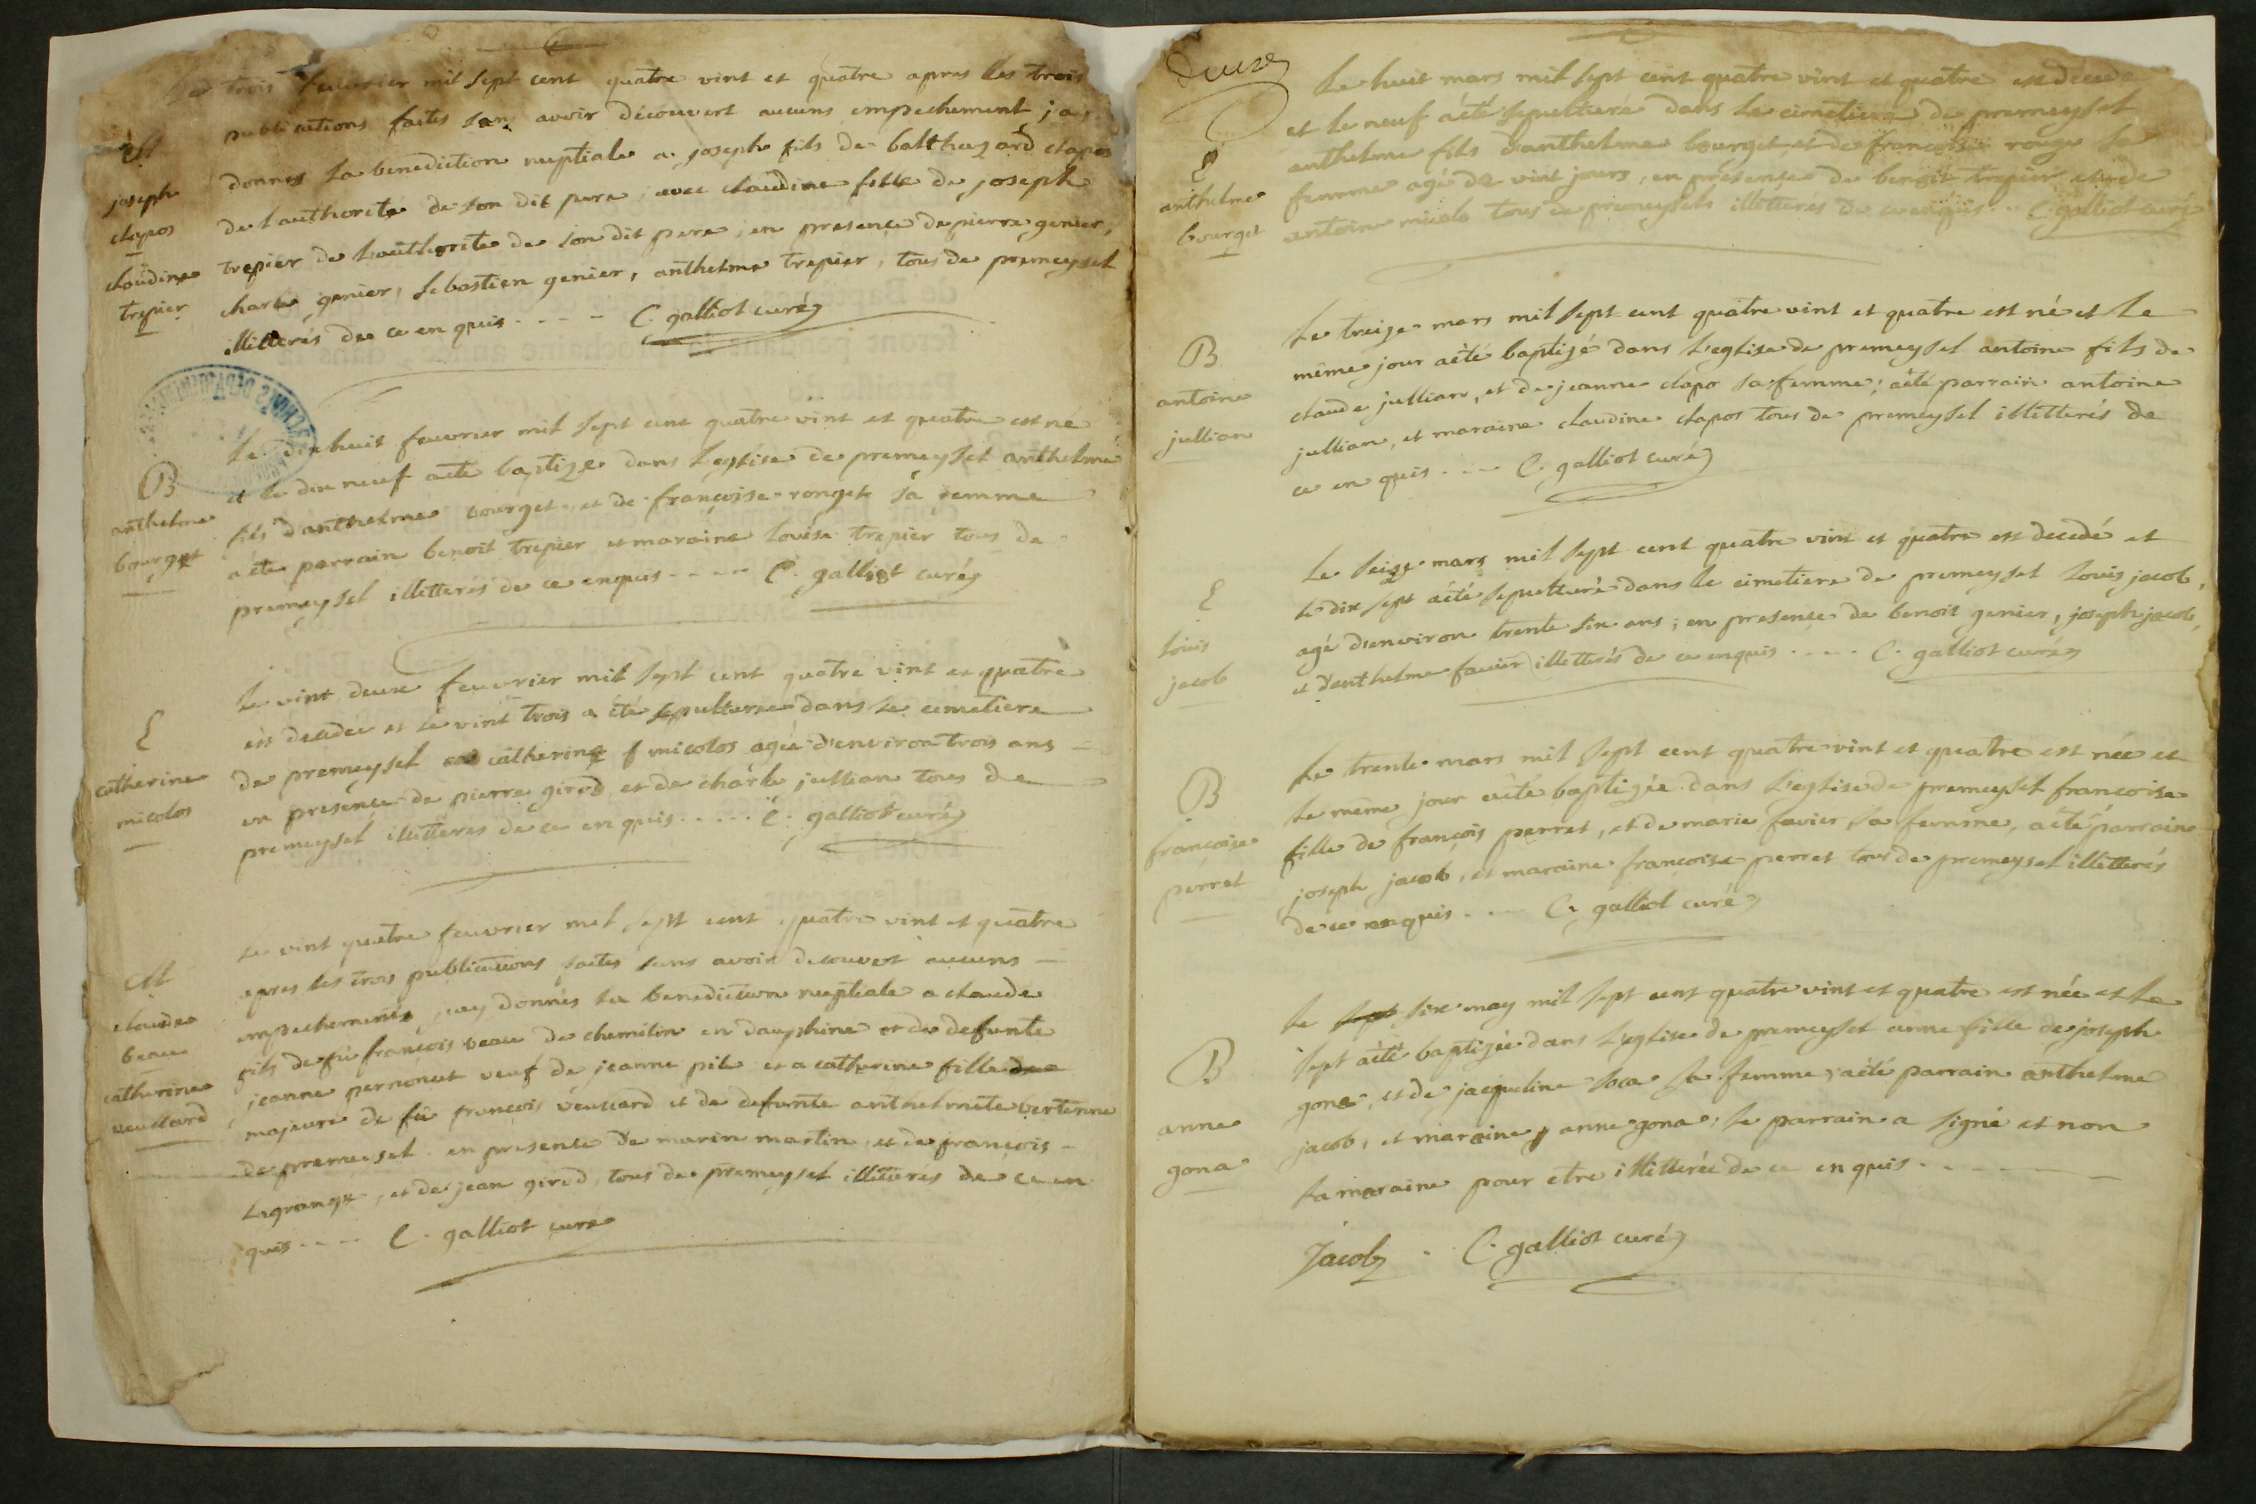 Le trois feuvrier mil sept cent quatre vint et quatre apres les trois
M
publications faites sans avoir découvert aucuns empechement jay
joseph
donnés la benediction nuptiale a joseph fils de balthazard clapos
clapos
de l'authorite de son dit pere, avec claudine fille de joseph
claudine
trepier de l'authorite de son dit pere, en presence de pierre genier,
trepier
charle genier, sebastien genier, anthelme trepier, tous de premeysel
illitterés de ce en quis - - - - C. galliot curé
Le dix huit feuvrier mil sept cent quatre vint et quatre est né
B
et le dix neuf a été baptize dans l'eglise de premeysel anthelme
anthelme
fils d'anthelme bourget, et de françoise ronget sa femme
bourget
a éte parrain benoit trepier et maraine louise trepier tous de
premeysel illitterés de ce enquis - - - - C. galliot curé
Le vint deux feuvrier mil sept cent quatre vint et quatre
E
est decedée et le vint trois a été sepulturée dans le cimetiere
catherine
de premeysel catherine f micolos agée d'environ trois ans
micolos
en presence de pierre girod, et de charle jullian tous de
premeysel illitteres de ce en quis - - - - C. galliot curé
Le vint quatre feuvrier mil sept cent quatre vint et quatre
M
apres les trois publications faites sans avoir decouvert aucuns
claude
empechements, jay donnés la benediction nuptiale a claude
beau
fils de fù françois beau de chemilin en dauphine et de defunte
catherine
jeanne pernonet veuf de jeanne pile et a catherine fille
veuttard
majeure de fù françois veuttard et de defunte anthelmete bertenne
de premeisel en presence de marin martin, et de françois
Legrange, et de jean girod, tous de premeysel illitterés de ce en
quis - - - - C. galliot cure
deux
Le huit mars mil sept cent quatre vint et quatre est decede
et le neuf a été sepulturé dans le cimetiere de premeysel
E
anthelme fils d'anthelme bourget, et de françoise ronge sa
anthelme
femme agé de vint jours, en présence de benoit trepier et de
bourget
antoine micolo tous de premeysels illitteres de ce enquis - - C. galliot curé
Le treize mars mil sept cent quatre vint et quatre est né et le
B
même jour a été baptizé dans l'eglise de premeysel antoine fils de
antoine
claude jullian, et de jeanne clapo sa femme; a été parrain antoine
jullian
jullian, et maraine claudine clapos tous de premeysel illitterés de
ce en quis - - - - C. galliot curé
Le seize mars mil sept cent quatre vint et quatre est decedé et
E
le dix sept a été sepulturé dans le cimetiere de premeysel louis jacob,
louis
agé d'environ trente six ans; en presence de benoit genier, joseph jacob,
jacob
et d'anthelme favier illitterés de ce enquis - - - - C. galliot curé
Le trente mars mil sept cent quatre vint et quatre est née et
B
le même jour a été baptizée dans l'eglise de premeysel françoise
françoise
fille de françois perret, et de marie favier sa femme, a été parrain
perret
joseph jacob, et maraine françoise perret tous de premeysel illitterés
de ce enquis - - - - C. galliot curé
Le sept six may mil sept cent quatre vint et quatre est née et le
B
sept a été baptizée dans l'eglise de premeysel anne fille de joseph
gona, et de jacqueline soca sa femme; a été parrain anthelme
anne
jacob, et maraine, anne gona; le parrain a signé et non
gona
la maraine pour etre illitterée de ce en quis - - - -
Jacob - C. galliot curé